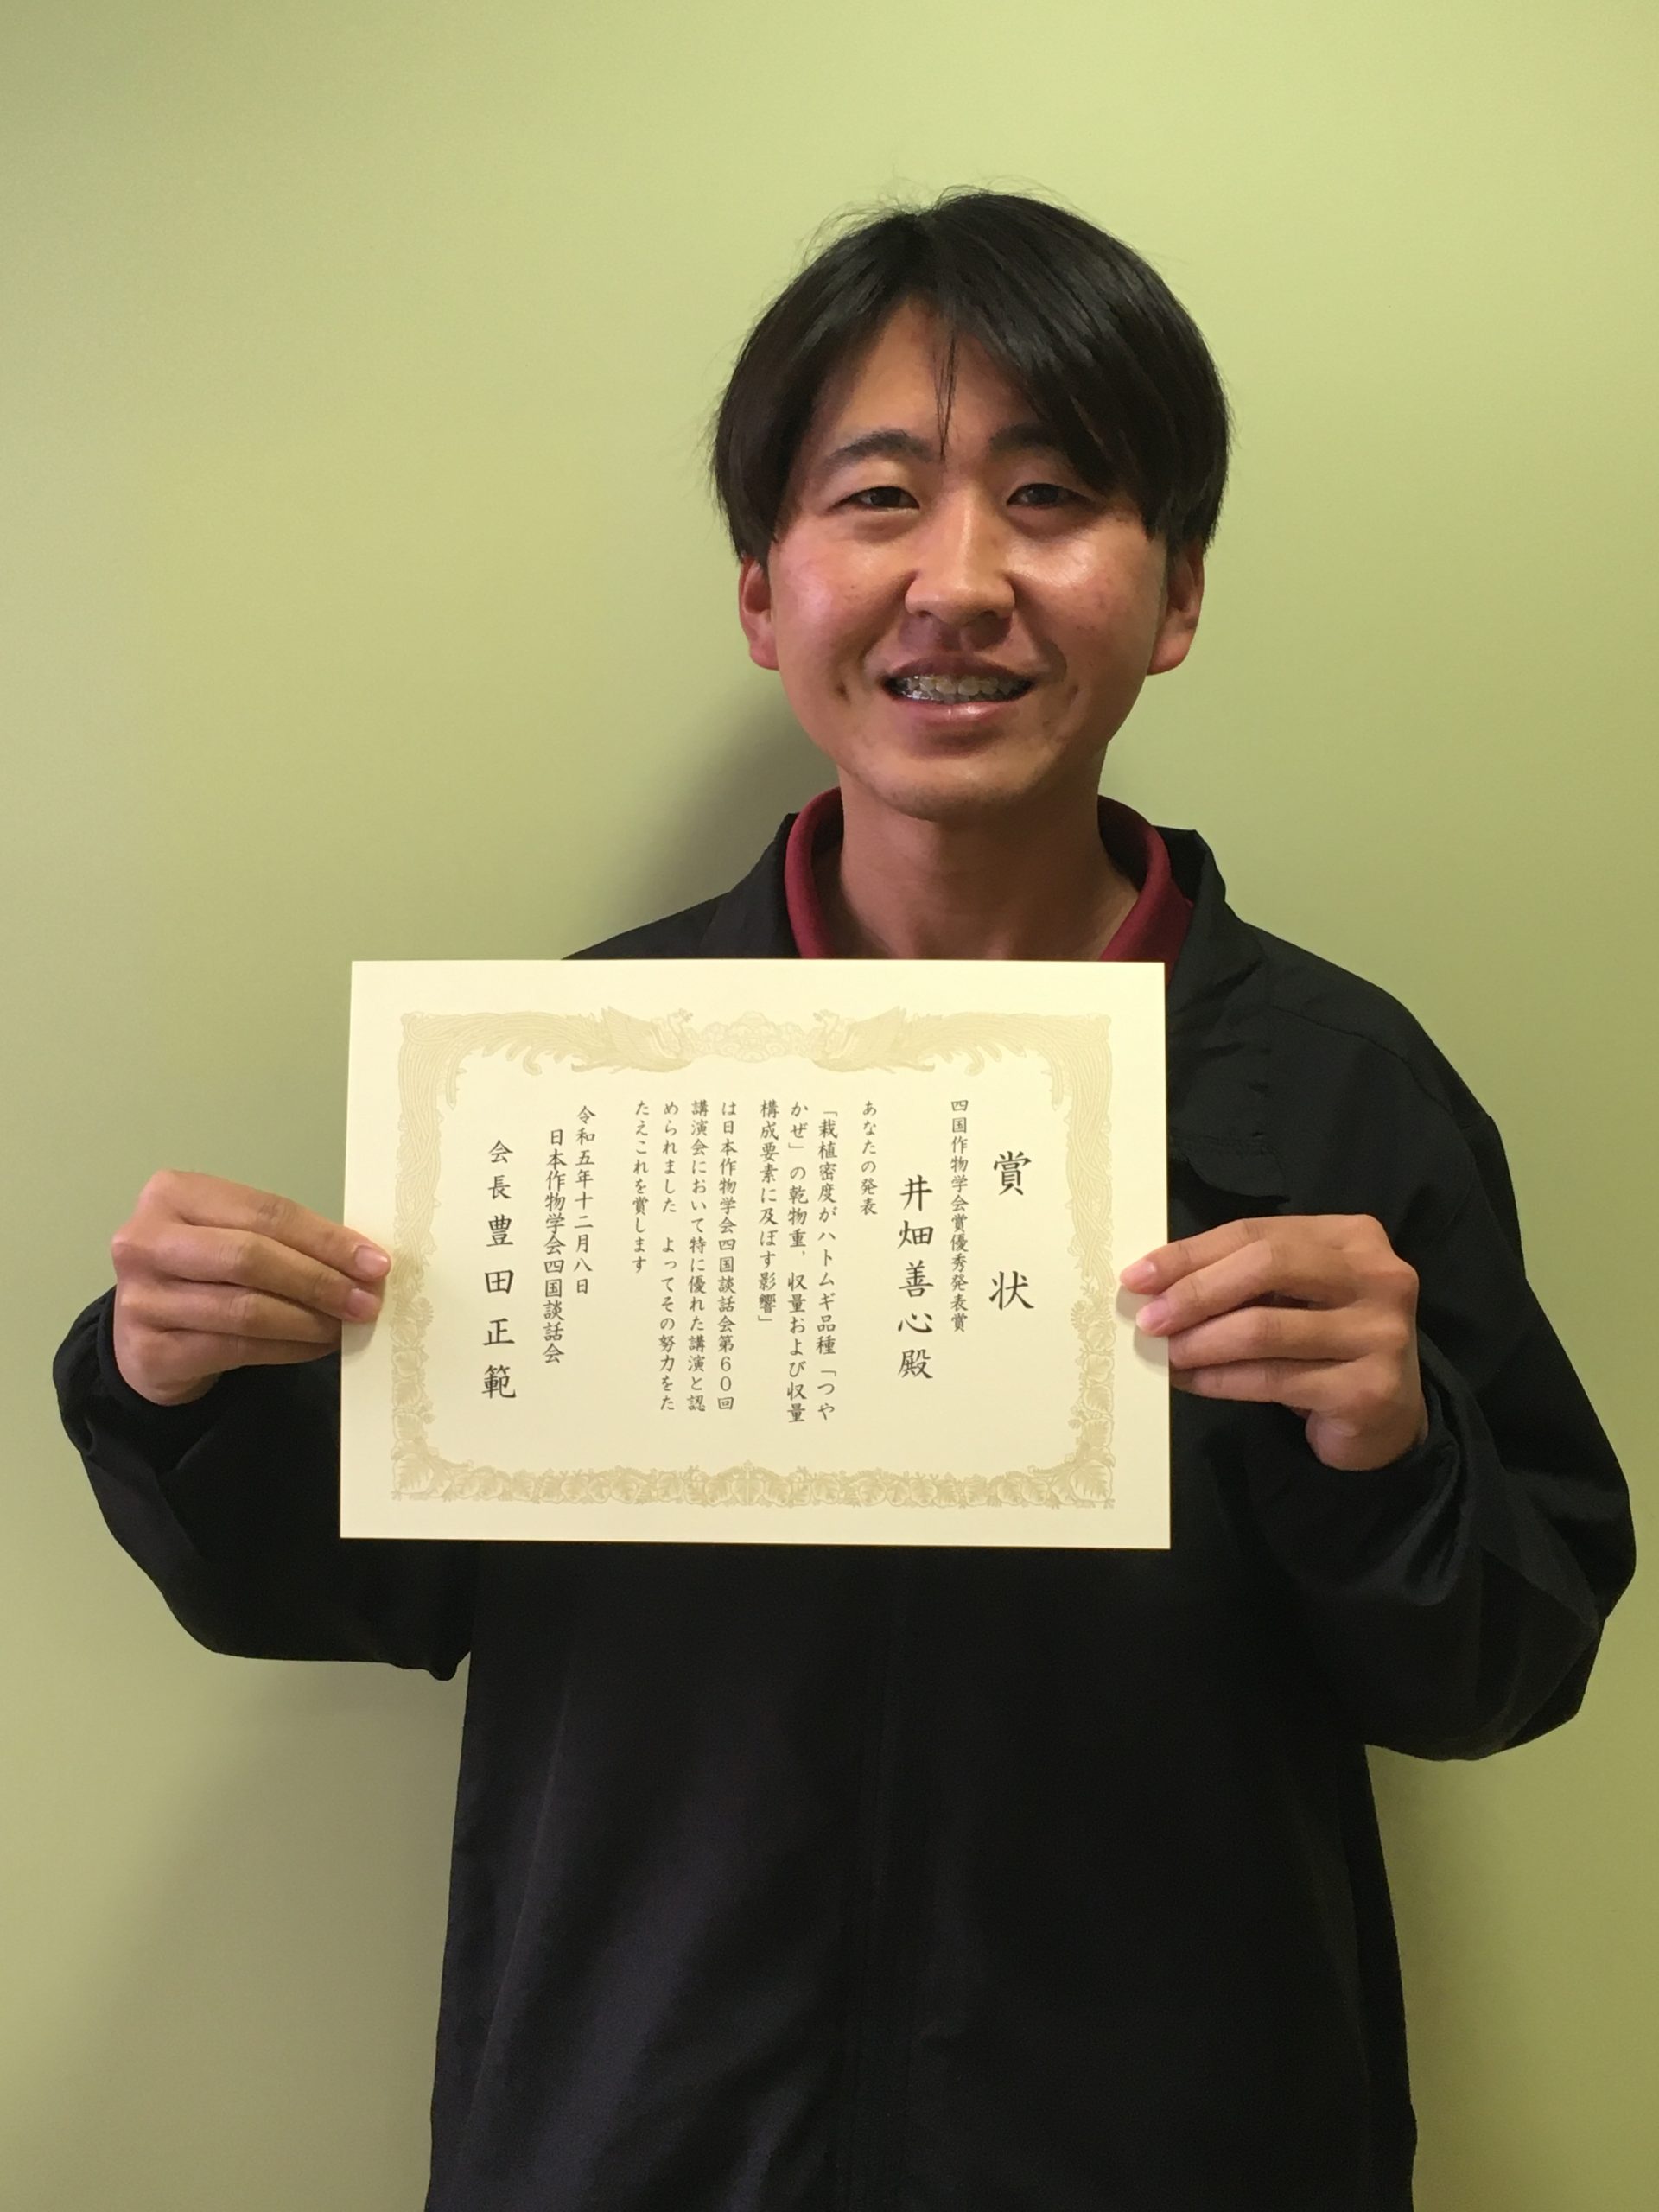 賞状
四国作物学会賞優秀発表賞
井畑善心殿
あなたの発表
「栽植密度がハトムギ品種「つや
かぜ」の乾物重，収量および収量
構成要素に及ぼす影響」
は日本作物学会四国談話会第60回
講演会において特に優れた講演と認
められました　よってその努力をた
たえこれを賞します
令和五年十二月八日
日本作物学会四国談話会
会長 豊田正範